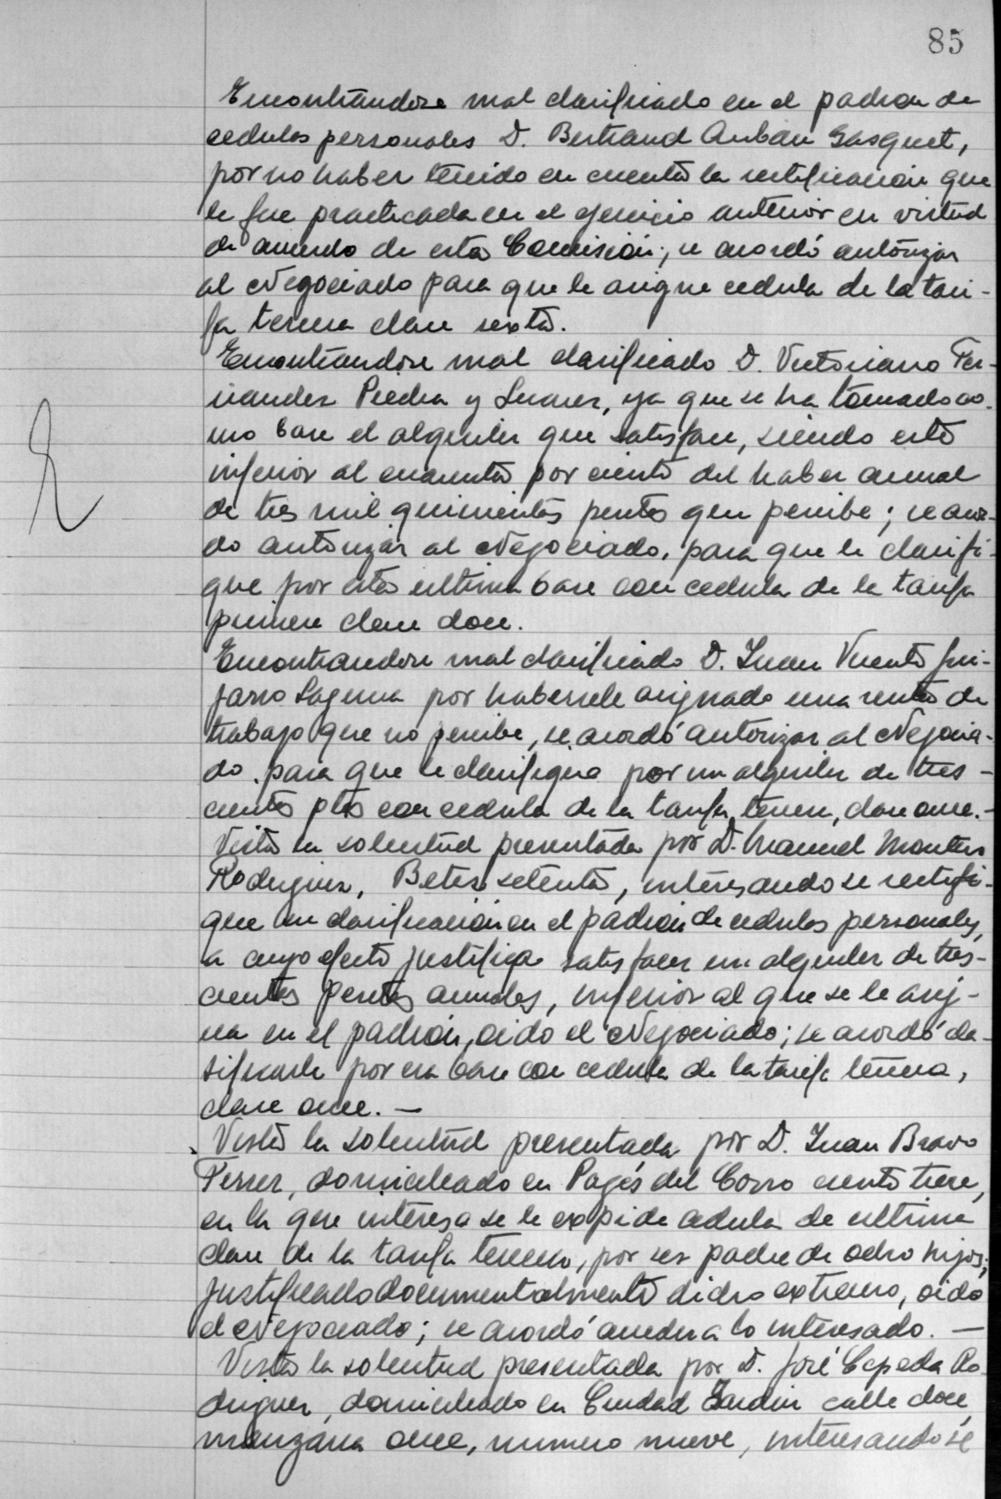 85
Encontrándose mal clasificado en el padron de
cedulas personales D. Bertrand Auban Gasquet,
por no haber tenido en cuenta la rectificacion que
le fue practicada en el ejercicio anterior en virtud
de acuerdo de esta Comision; se acordó autorizar
al Negociado para que le asigne cedula de la tari-
fa tercera clase sexta.
Encontrandose mal clasificado D. Victoriano Fer-
nandez Piedra y Suarez, ya que se ha tomado co-
mo base el alquiler que satisface, siendo este
inferior al cincuenta por ciento del haber anual
de tres mil quinientas pesetas que percibe; se acor-
do autorizar al Negociado, para que le clasifi-
que por esta ultima base con cedula de la tarifa
primera clase doce.
Encontrandose mal clasificado D. Juan Vicente Gui-
jarro Laguna por habersele asignado una renta de
trabajo que no percibe, se acordó autorizar al Negocia-
do para que le clasifique por un alquiler de tres-
cientas ptas con cedula de la tarifa tercera, clase once.-
Vista la solicitud presentada por D. Manuel Montero
Rodriguez, Betis setenta, interesando se rectifi-
que su clasificación en el padrón de cedulas personales,
a cuyo efecto justifica satisfacer un alquiler de tres-
cientas pesetas anuales, inferior al que se le asig-
na en el padrón, oido el Negociado; se acordó cla-
sificarle por esa base con cedula de la tarifa tercera,
clase once. —
Vista la solicitud presentada por D. Juan Bravo
Ferrer, domiciliado en Pagés del Corro ciento trece,
en la que interesa se le expida cedula de ultima
clase de la tarifa tercera, por ser padre de ocho hijos;
justificado documentalmente dicho extremo, oido
el Negociado; se acordó acceder a lo interesado. —
Vista la solicitud presentada por D. José Cepeda Ro-
driguez, domiciliado en Ciudad Jardin calle doce,
manzana once, numero nueve, interesando se